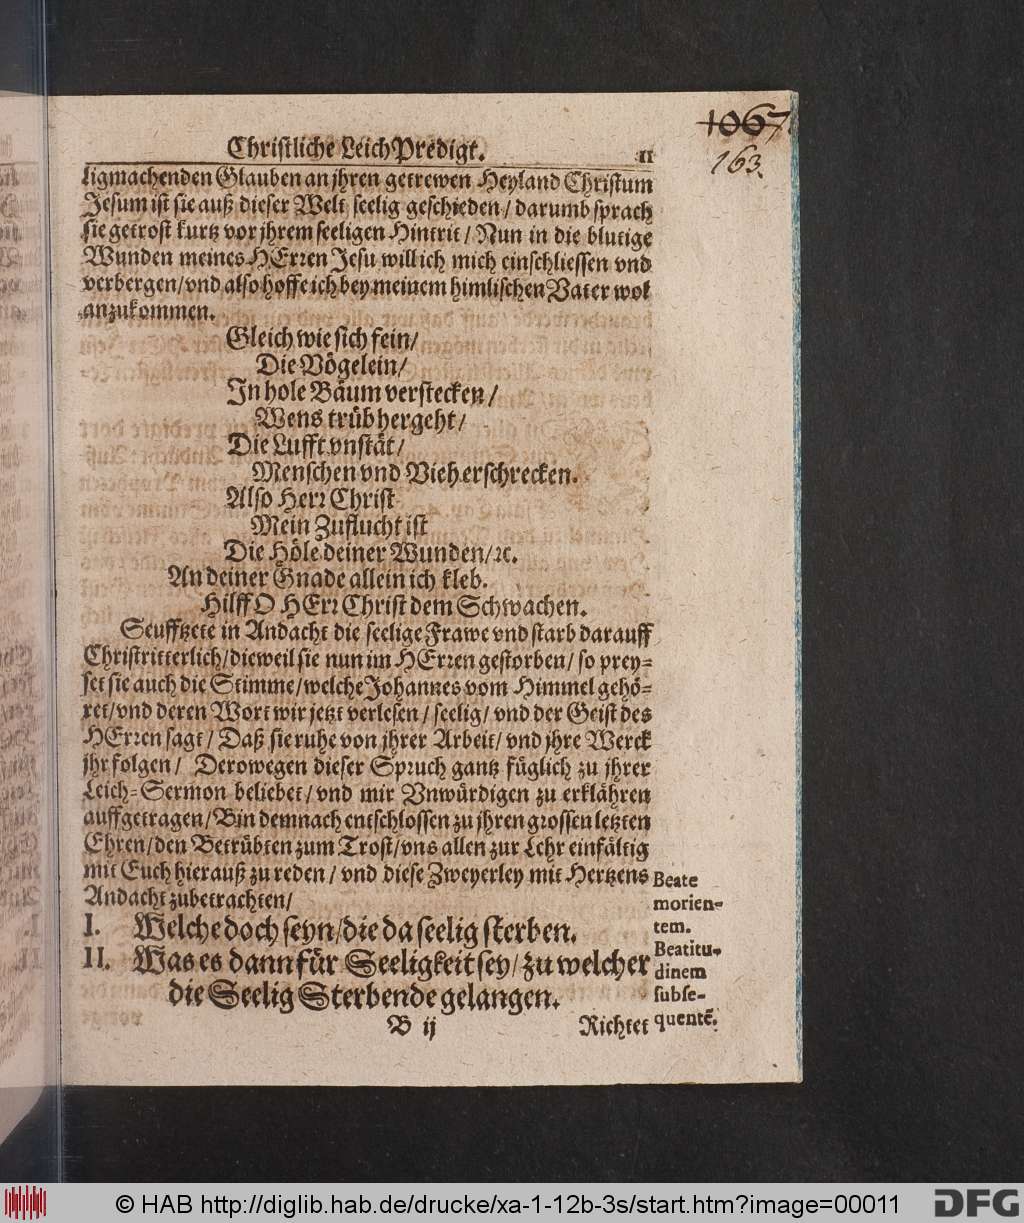 1067
163.
Christliche LeichPredigt. 11
ligmachenden Glauben an jhren getrewen Heyland Christum
Jesum ist sie auß dieser Welt seelig geschieden / darumb sprach
sie getrost kurtz vor jhrem seeligen Hintrit / Nun in die blutige
Wunden meines HErren Jesu will ich mich einschliessen vnd
verbergen / vnd also hoffe ich bey meinem himlischen Vater wol
anzukommen.
Gleich wie sich fein /
Die Vögelein /
In hole Bäum verstecken /
Wens trüb hergeht /
Die Lufft vnstät /
Menschen vnd Vieh erschrecken.
Also Herr Christ
Mein Zuflucht ist
Die Höle deiner Wunden / ꝛc.
An deiner Gnade allein ich kleb.
Hilff O HErr Christ dem Schwachen.
Seufftzete in Andacht die seelige Frawe vnd starb darauff
Christritterlich / dieweil sie nun im HErren gestorben / so prey-
set sie auch die Stimme / welche Johannes vom Himmel gehö-
ret / vnd deren Wort wir jetzt verlesen / seelig / vnd der Geist des
HErren sagt / Daß sie ruhe von jhrer Arbeit / vnd jhre Werck
jhr folgen / Derowegen dieser Spruch gantz füglich zu jhrer
Leich-Sermon beliebet / vnd mir Vnwürdigen zu erklähren
auffgetragen / Bin demnach entschlossen zu jhren grossen letzten
Ehren / den Betrübten zum Trost / vns allen zur Lehr einfältig
mit Euch hierauß zu reden / vnd diese Zweyerley mit Hertzens
Andacht zubetrachten /
I. Welche doch seyn / die da seelig sterben.
II. Was es dann für Seeligkeit sey / zu welcher
die Seelig Sterbende gelangen.
Beate
morien-
tem.
Beatitu-
dinem
subse-
quentẽ.
B ij Richtet
© HAB http://diglib.hab.de/drucke/xa-1-12b-3s/start.htm?image=00011
DFG